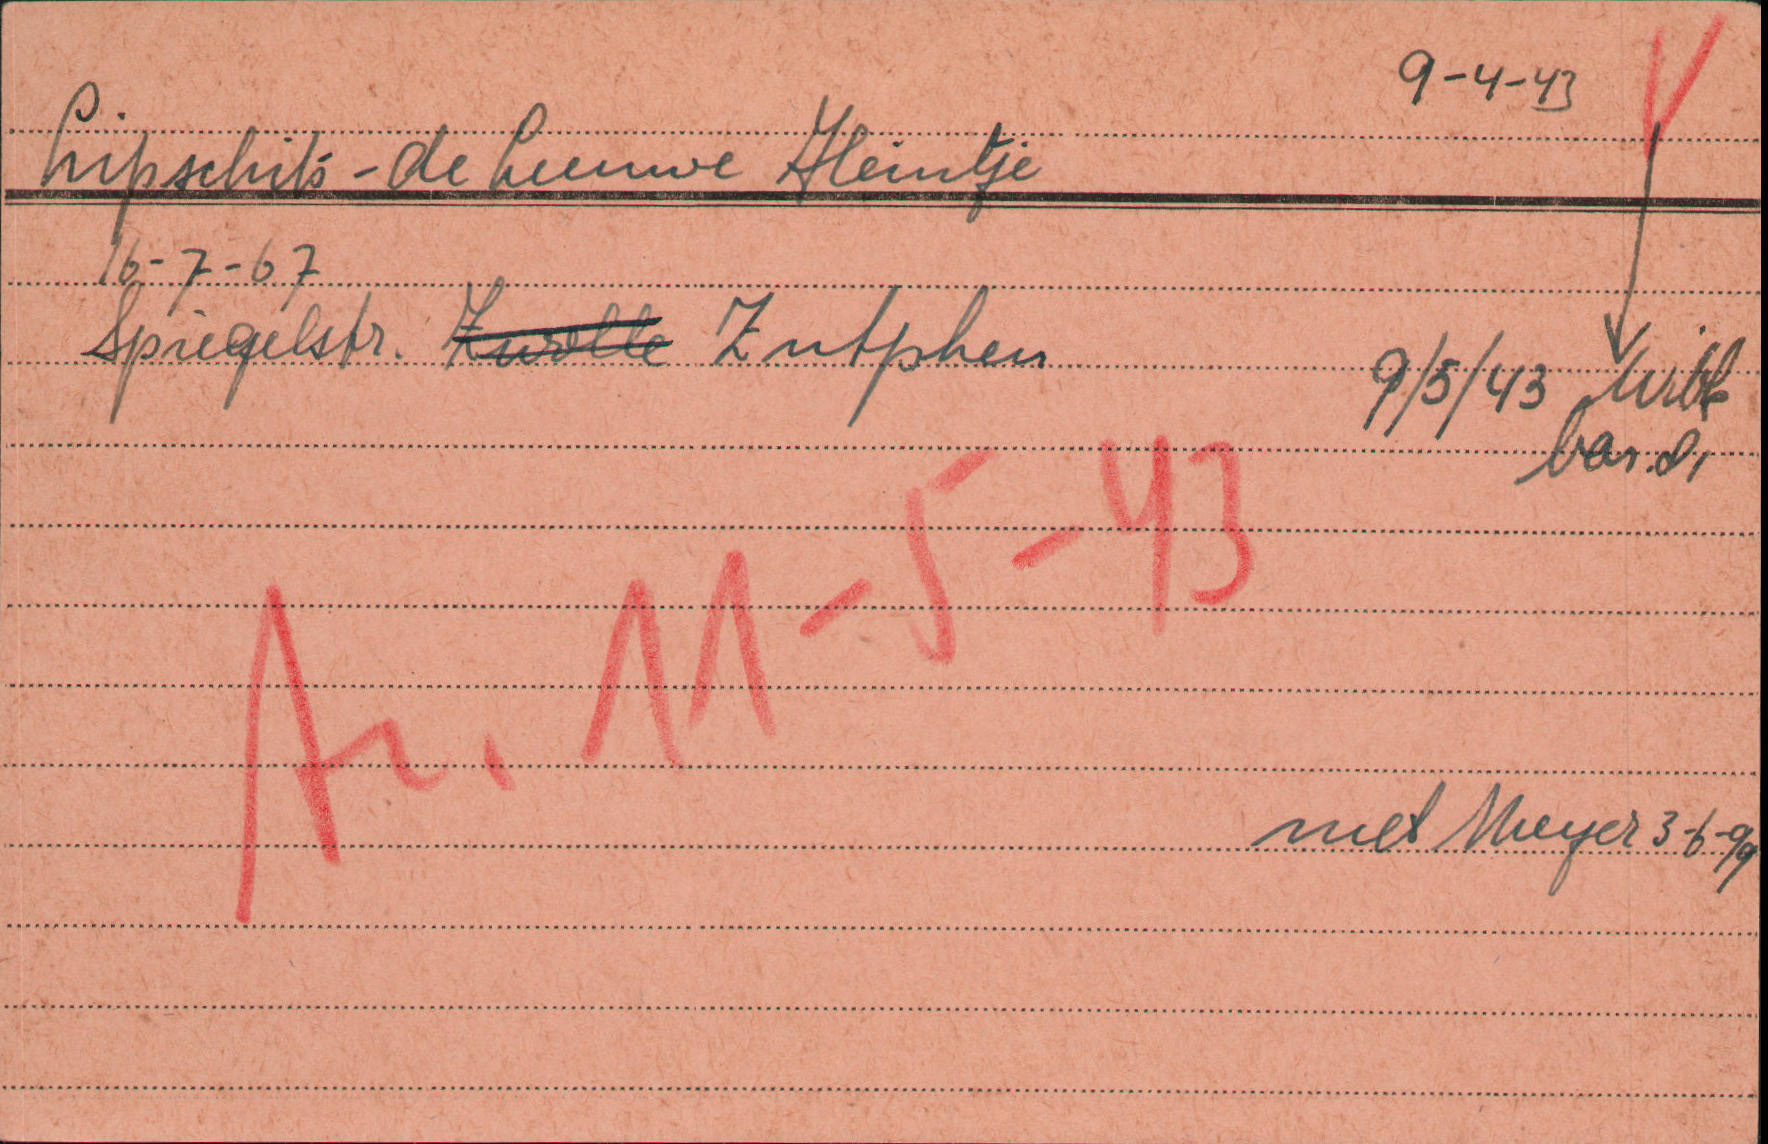 9-4-43 V
Lipschits - de Leeuwe Heintje
16-7-67
Spiegelstr. Zwolle Zutphen
9/5/43 Witb
bar. 8,
Av. 11-5-43
met Meyer 3-6-99